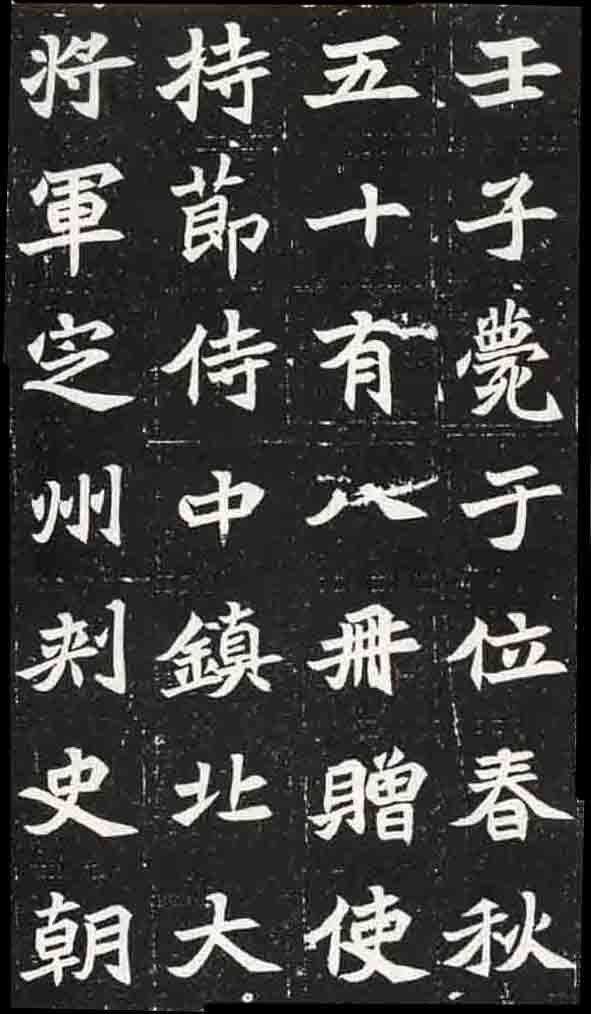 壬子薨于位春秋
五十有八冊贈使
持節侍中鎮北大
將軍定州刺史朝